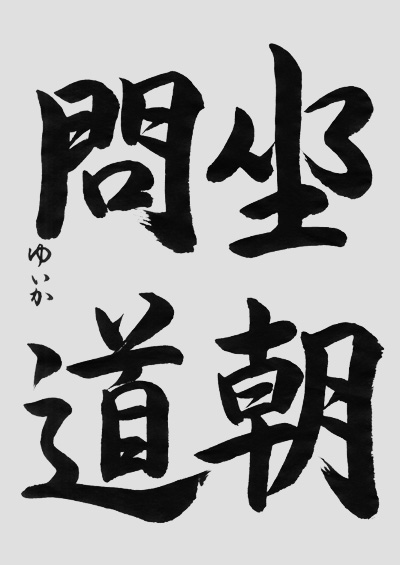 坐朝
問道
ゆいか